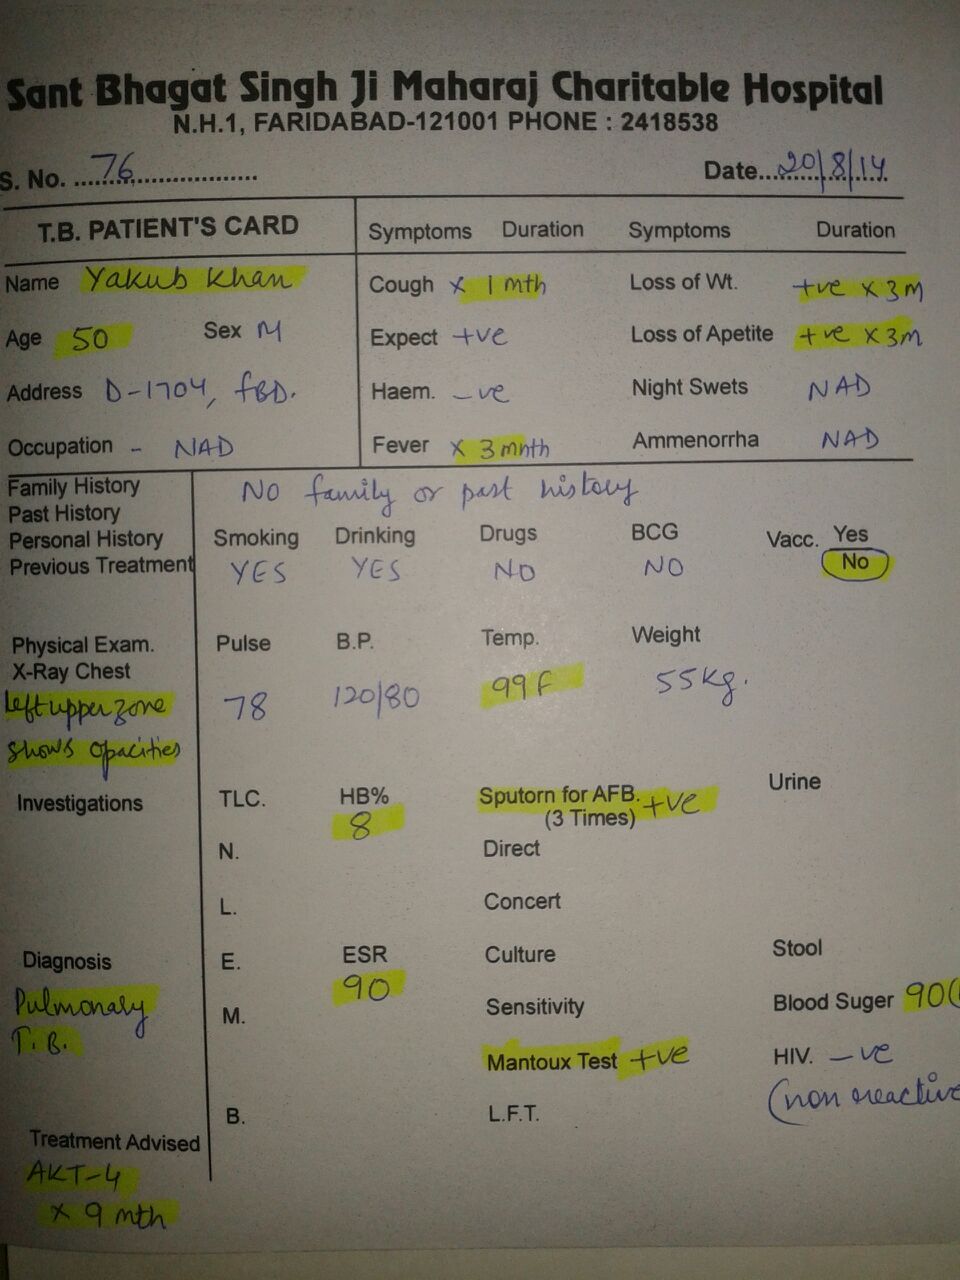 Sant Bhagat Singh Ji Maharaj Charitable Hospital
N.H.1, FARIDABAD-121001 PHONE : 2418538
S. No. 76 Date 20/8/14
T.B. PATIENT'S CARD Symptoms Duration Symptoms Duration
Name Yakub Khan Cough x 1 mth Loss of Wt. +ve x 3M
Age 50 Sex M Expect +ve Loss of Apetite +ve x 3M
Address D-1704, FBD. Haem. -ve Night Swets NAD
Occupation - NAD Fever x 3 mnth Ammenorrha NAD
Family History NO family or past history
Past History
Personal History Smoking Drinking Drugs BCG Vacc. Yes
Previous Treatment YES YES NO NO No
Physical Exam. Pulse B.P. Temp. Weight
X-Ray Chest
Left upper zone 78 120/80 99 F 55kg.
shows opacities
Investigations TLC. HB% Sputorn for AFB. +ve Urine
8 (3 Times)
N. Direct
L. Concert
Diagnosis E. ESR Culture Stool
Pulmonaly 90 Sensitivity Blood Suger 90(
T.B. M.
Mantoux Test +ve HIV. -ve
B. L.F.T. (non reactive
Treatment Advised
AKT-4
x 9 mth